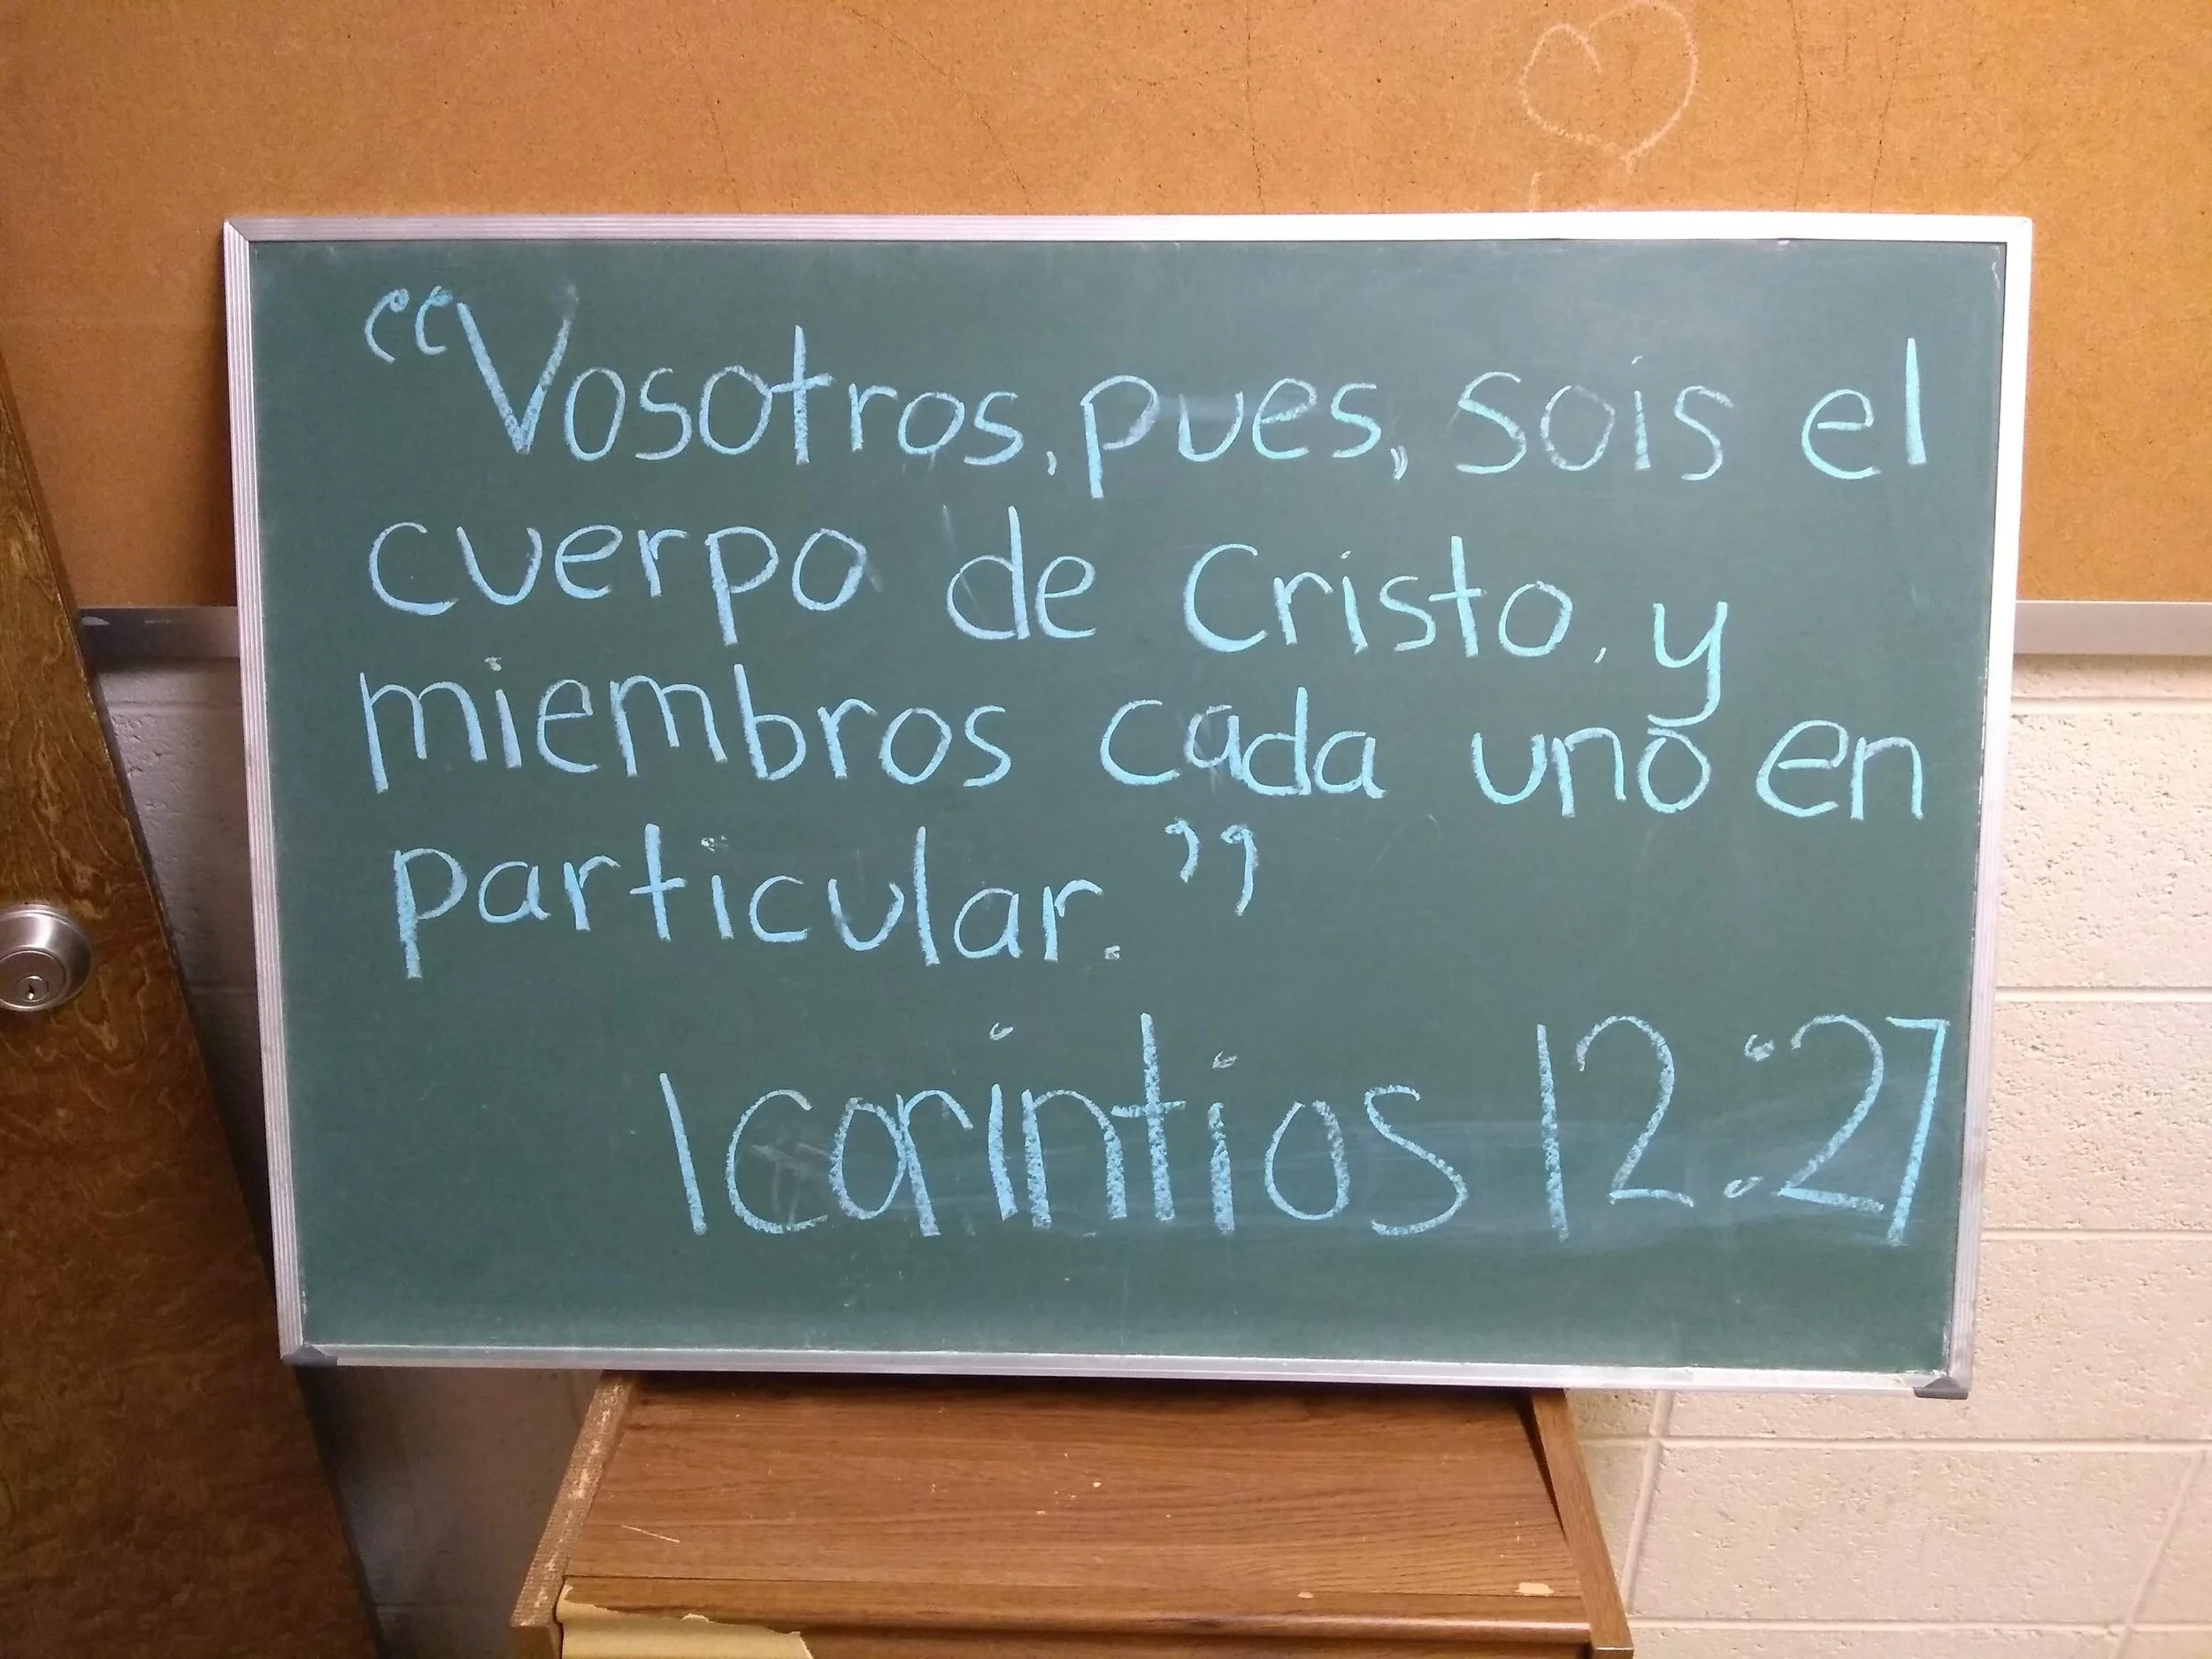 “Vosotros, pues, sois el
cuerpo de Cristo, y
miembros cada uno en
particular.”
1 corintios 12:27